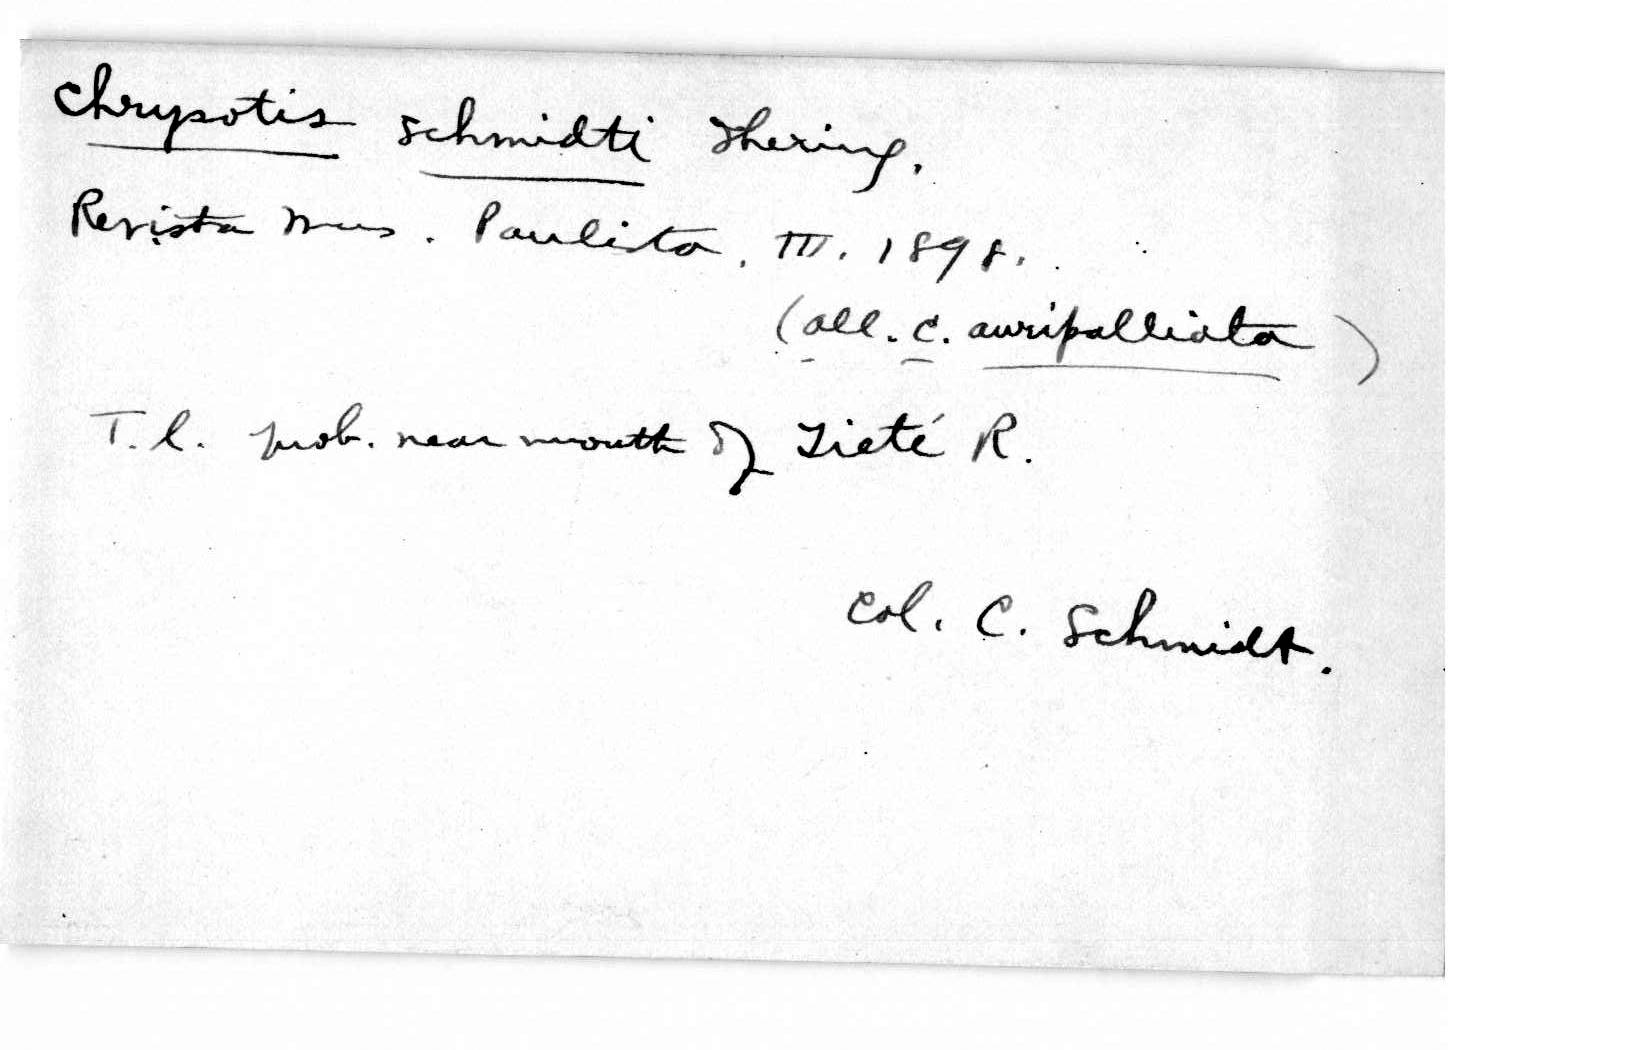 Chrysotis schmidti Ihering.
Revista Mus. Paulista, III. 1898.
(all. C. auripalliata)
T.l. prob. near mouth of Tieté R.
Col. C. Schmidt.